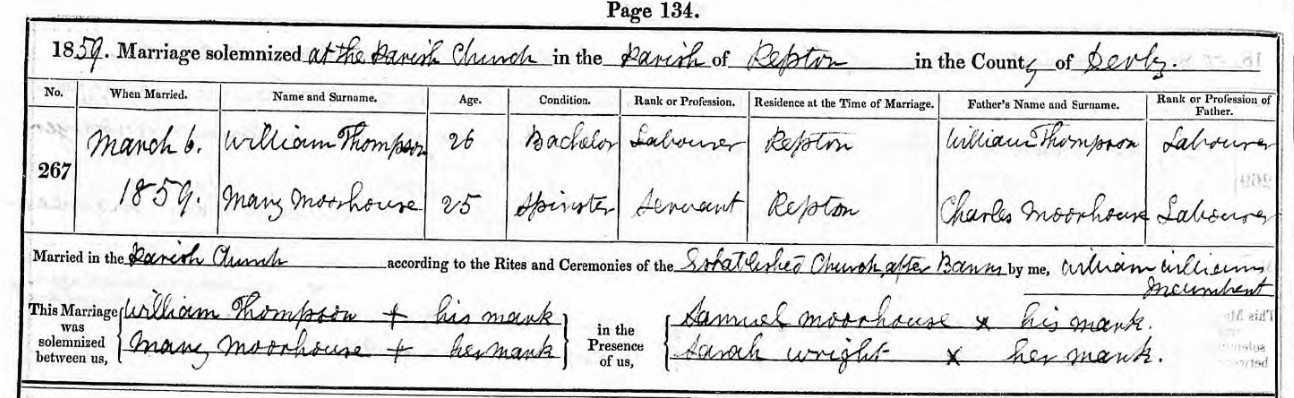 Page 134.
1859. Marriage solemnized at the Parish Church in the Parish of Repton in the County of Derby.
No. When Married. Name and Surname. Age. Condition. Rank or Profession. Residence at the Time of Marriage. Father's Name and Surname. Rank or Profession of Father.
267 March 6. William Thompson 26 Bachelor Labourer Repton William Thompson Labourer
1859. Mary Moorhouse 25 Spinster Servant Repton Charles Moorhouse Labourer
Married in the Parish Church according to the Rites and Ceremonies of the Established Church after Banns by me, William Williams
Incumbent
This Marriage was solemnized between us, William Thompson + his mark in the Presence of us, Samuel Moorhouse x his mark.
Mary Moorhouse + her mark Sarah Wright x her mark.